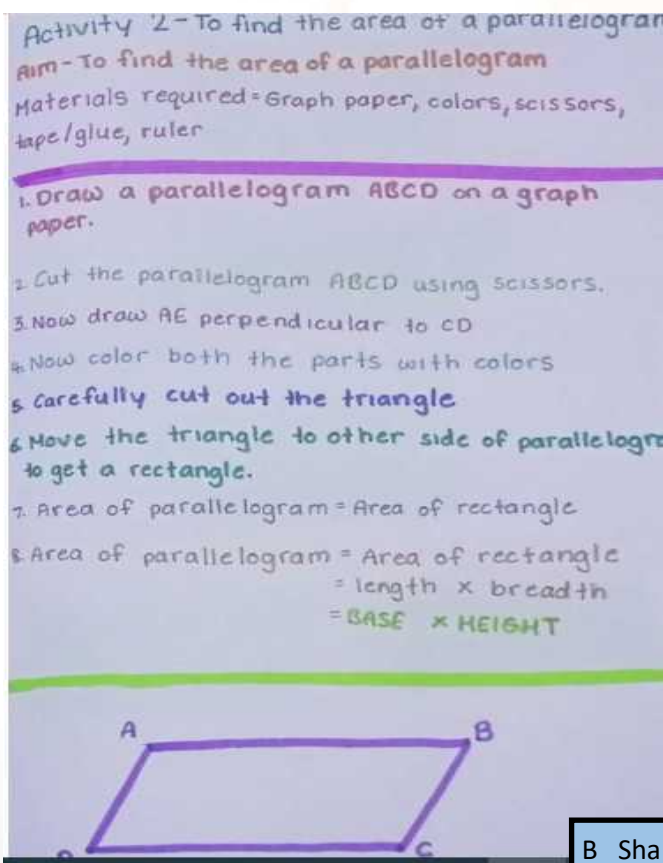 Activity 2 - To find the area of a parallelogram
Aim - To find the area of a parallelogram
Materials required = Graph paper, colors, scissors,
tape/glue, ruler
1. Draw a parallelogram ABCD on a graph
paper.
2. Cut the parallelogram ABCD using scissors.
3. Now draw AE perpendicular to CD
4. Now color both the parts with colors
5. Carefully cut out the triangle
6. Move the triangle to other side of parallelogra
to get a rectangle.
7. Area of parallelogram = Area of rectangle
8. Area of parallelogram = Area of rectangle
= length x breadth
= BASE x HEIGHT
A B
C
B Sha